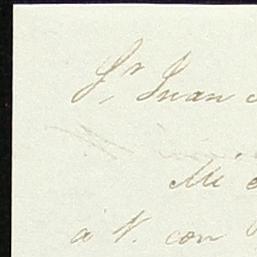 Sr Juan
Mi
a V. con